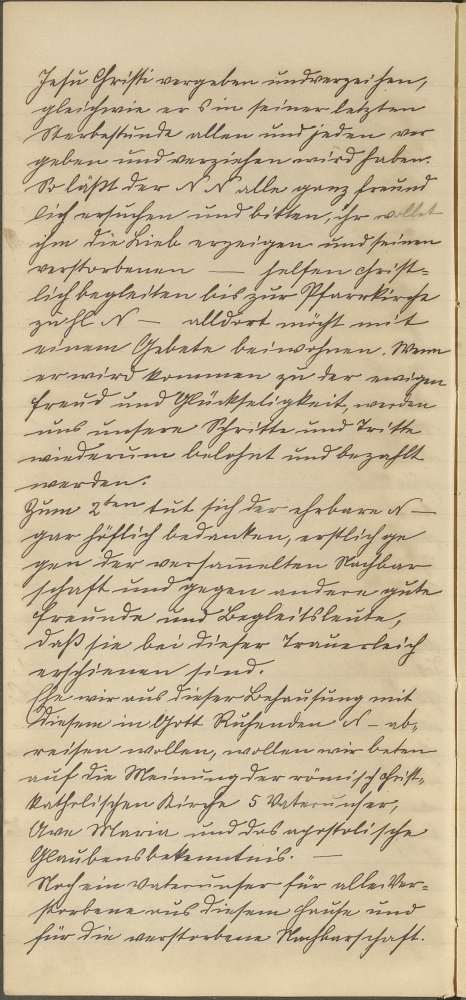 Jesu Christi vergeben und verzeihen,
gleichwie er S in seiner letzten
Sterbestunde allen und jeden ver
geben und verziehen wird haben.
So läßt der N N alle ganz freund
lich ersuchen und bitten, ihr wollet
ihm die Lieb erzeigen und seinen
verstorbenen — helfen christ=
lich begleiten bis zur Pfarrkirche
zu hl N — alldort möcht mit
einem Gebete beiwohnen. Wenn
er wird kommen zu der ewigen
Freud und Glückseligkeit, werden
uns unsere Schritte und Tritte
wiederum belohnt und bezahlt
werden.
Zum 2ten tut sich der ehrbare N —
gar höflich bedanken, erstlich ge
gen der versam̄elten Nachbar
schaft und gegen andere gute
Freunde und Begleitsleute,
daß sie bei dieser Trauerleich
erschienen sind.
Ehe wir aus dieser Behausung mit
diesem in Gott Ruhenden N — ab=
reisen wollen, wollen wir beten
auf die Meinung der römisch christ=
katholischen Kirche 5 Vaterunser,
Ave Maria und das apostolische
Glaubensbekenntnis. —
Noch ein Vaterunser für alle Ver=
storbene aus diesem Hause und
für die verstorbene Nachbarschaft.